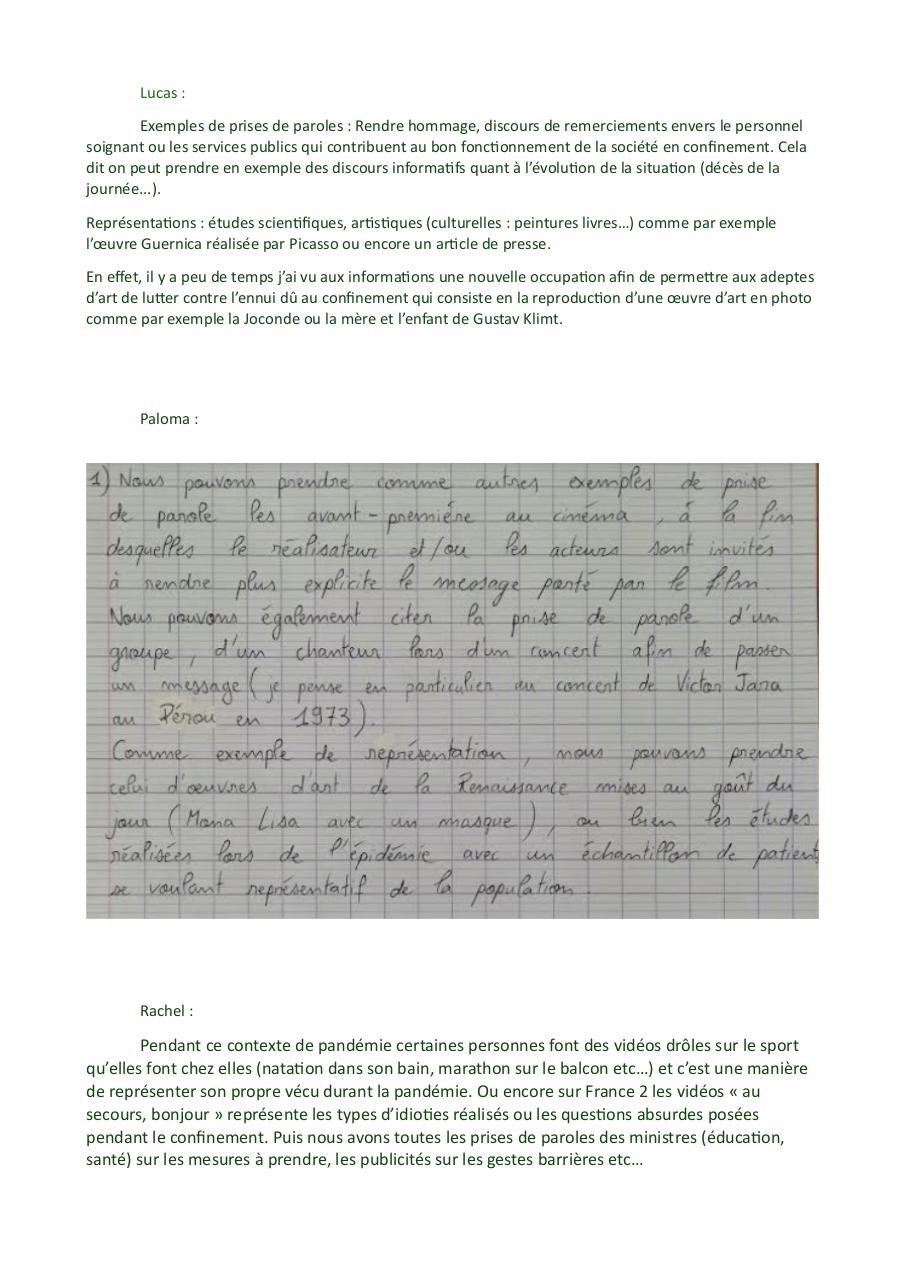 Lucas :
Exemples de prises de paroles : Rendre hommage, discours de remerciements envers le personnel
soignant ou les services publics qui contribuent au bon fonctionnement de la société en confinement. Cela
dit on peut prendre en exemple des discours informatifs quant à l’évolution de la situation (décès de la
journée…).
Représentations : études scientifiques, artistiques (culturelles : peintures livres…) comme par exemple
l’œuvre Guernica réalisée par Picasso ou encore un article de presse.
En effet, il y a peu de temps j’ai vu aux informations une nouvelle occupation afin de permettre aux adeptes
d’art de lutter contre l’ennui dû au confinement qui consiste en la reproduction d’une œuvre d’art en photo
comme par exemple la Joconde ou la mère et l’enfant de Gustav Klimt.
Paloma :
1) Nous pouvons prendre comme autres exemples de prise
de parole les avant-première au cinéma, à la fin
desquelles le réalisateur et/ou les acteurs sont invités
à rendre plus explicite le message porté par le film.
Nous pouvons également citer la prise de parole d'un
groupe, d'un chanteur lors d'un concert afin de passer
un message (je pense en particulier au concert de Victor Jara
au Pérou en 1973).
Comme exemple de représentation, nous pouvons prendre
celui d'oeuvres d'art de la Renaissance mises au goût du
jour (Mona Lisa avec un masque), ou bien les études
réalisées lors de l'épidémie avec un échantillon de patients
se voulant représentatif de la population.
Rachel :
Pendant ce contexte de pandémie certaines personnes font des vidéos drôles sur le sport
qu’elles font chez elles (natation dans son bain, marathon sur le balcon etc…) et c’est une manière
de représenter son propre vécu durant la pandémie. Ou encore sur France 2 les vidéos « au
secours, bonjour » représente les types d’idioties réalisés ou les questions absurdes posées
pendant le confinement. Puis nous avons toutes les prises de paroles des ministres (éducation,
santé) sur les mesures à prendre, les publicités sur les gestes barrières etc…